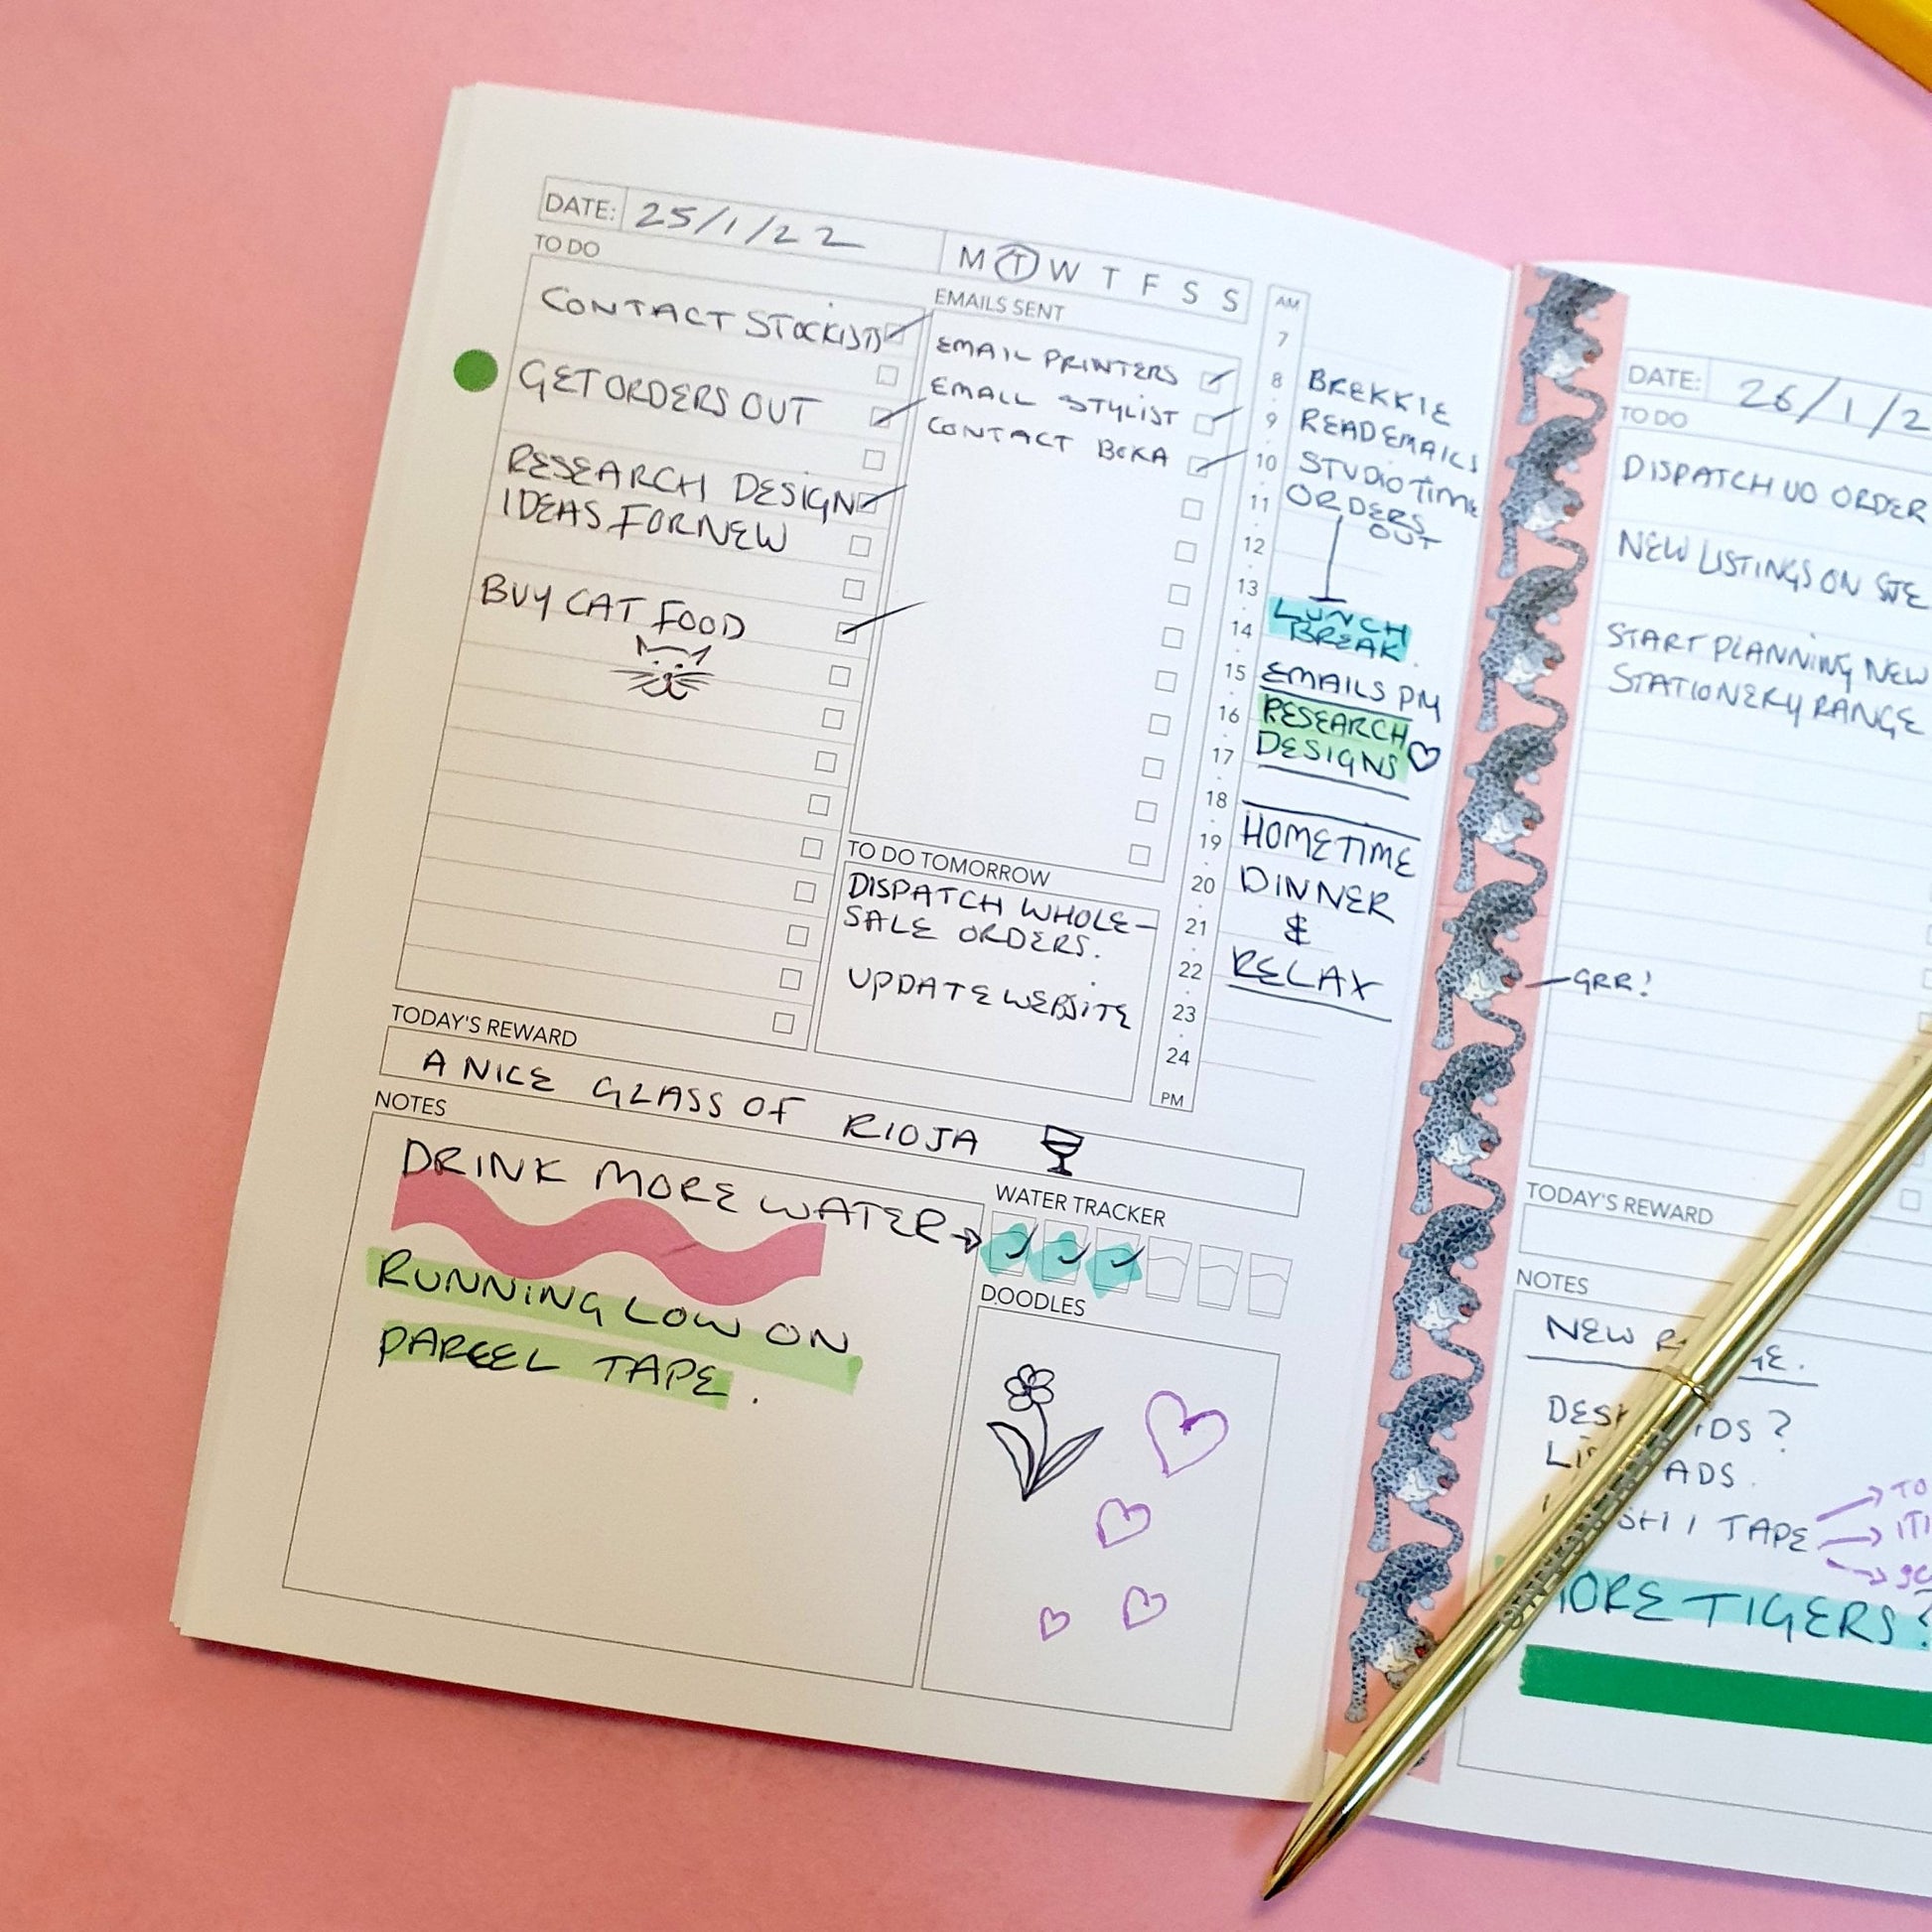 DATE: 25/1/22
M T W T F S S
TO DO
CONTACT STOCKISTS
GET ORDERS OUT
RESEARCH DESIGN
IDEAS FOR NEW
BUY CAT FOOD
EMAILS SENT
EMAIL PRINTERS
EMAIL STYLIST
CONTACT BEKA
TO DO TOMORROW
DISPATCH WHOLE-
SALE ORDERS.
UPDATE WEBSITE
AM
7
8 BREKKIE
9 READ EMAILS
10 STUDIO TIME
11 ORDERS
OUT
12
13
LUNCH
14 BREAK
15 EMAILS PM
16 RESEARCH
17 DESIGNS
18
19 HOMETIME
20 DINNER
21 &
22 RELAX
23
24
PM
TODAY'S REWARD
A NICE GLASS OF RIOJA
NOTES
DRINK MORE WATER
RUNNING LOW ON
PARCEL TAPE.
WATER TRACKER
DOODLES
DATE: 26/1/2
TO DO
DISPATCH UO ORDER
NEW LISTINGS ON SITE
START PLANNING NEW
STATIONERY RANGE
GRR!
TODAY'S REWARD
NOTES
NEW
TAPE
TO
ITI
TIGERS?